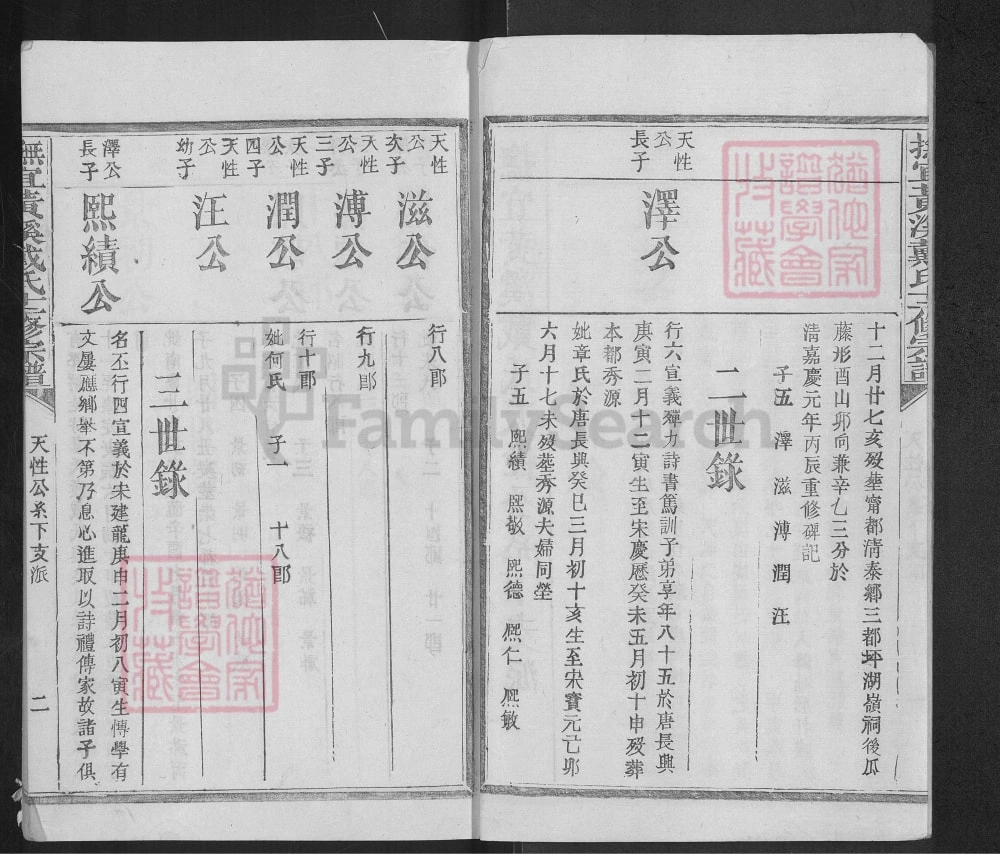 十二月廿七亥歿塟甯都清泰鄉三都坪湖嶺祠後瓜
藤形酉山卯向兼辛乙三分於
清嘉慶元年丙辰重修碑記
子五 澤 滋 溥 潤 汪
二世錄
天性
公
長子
澤公
行六宣義殫力詩書篤訓子弟享年八十五於唐長興
庚寅二月十二寅生至宋慶歷癸未五月初十申歿葬
本都秀源
妣章氏於唐長興癸巳三月初十亥生至宋寶元己卯
六月十七未歿塟秀源夫婦同塋
子五 熙績 熙敬 熙德 熙仁 熙敏
天性
公
次子
滋公
行八郎
天性
公
三子
溥公
行九郎
天性
公
四子
潤公
行十郎
妣何氏 子一 十八郎
天性
公
幼子
汪公
三世錄
澤公
長子
熙績公
名丕行四宣義於宋建龍庚申二月初八寅生博學有
文屢應鄉舉不第乃息心進取以詩禮傳家故諸子俱
撫宜黃溪戴氏十二修宗譜
天性公系下亥派
二
FamilySearch